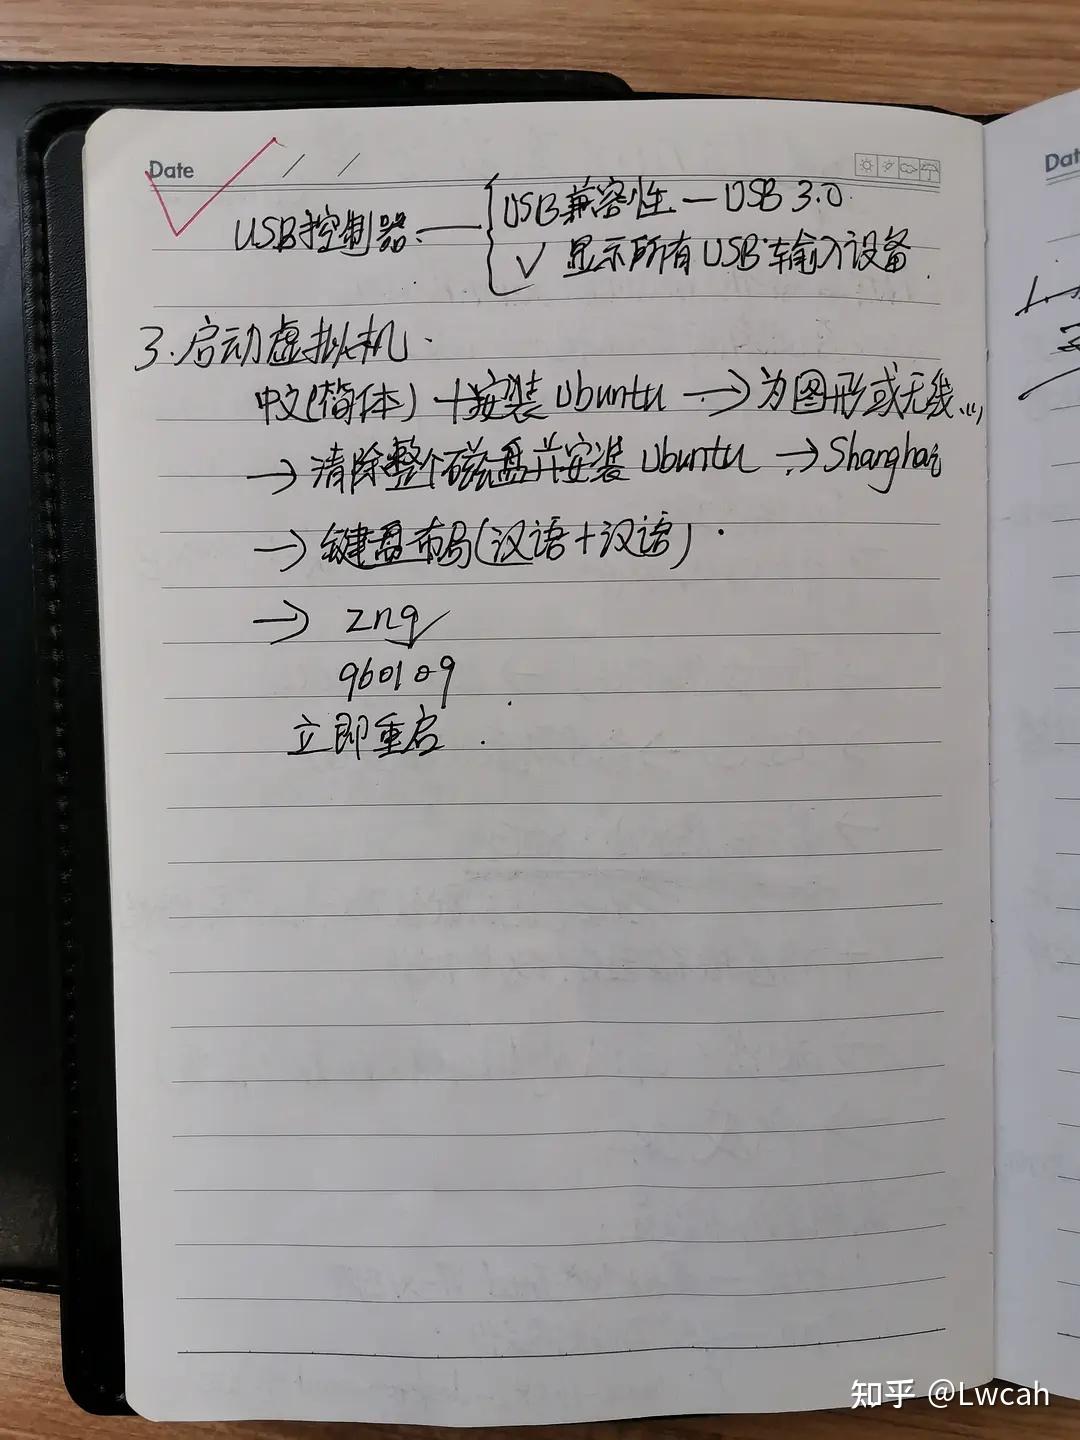 Date / /
USB控制器 — { USB兼容性 — USB 3.0
✓ 显示所有USB输入设备.
3.启动虚拟机.
中文(简体) + 安装Ubuntu → 为图形或无线...
→ 清除整个磁盘并安装Ubuntu → Shanghai
→ 键盘布局(汉语+汉语).
→ znq
960109
立即重启.
Dat
1.
知乎 @Lwcah